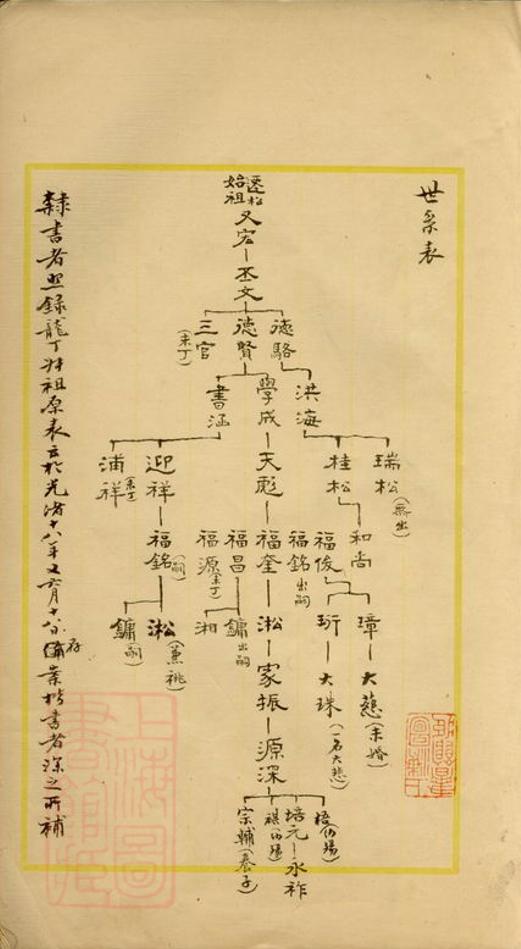 世系表
遷松
始祖
又宏
丕文
德駱
德賢
三官
(未丁)
洪海
學成
書涵
瑞松
(無出)
桂松
天彪
迎祥
浦祥
(未丁)
和尚
福俊
福銘
出嗣
福奎
福昌
福源
(未丁)
福銘
(嗣)
璋
珩
淞
鏞
出嗣
湘
淞
(兼祧)
鏞
(嗣)
大慈
(未婚)
大珠
(一名大悲)
家振
源深
梧
培元
永祚
祺
宗輔
(養子)
隸書者照錄龍丁 祖原表云於光緒十八年又六月十八日 存備案楷書者深之所補
上海圖
書館藏